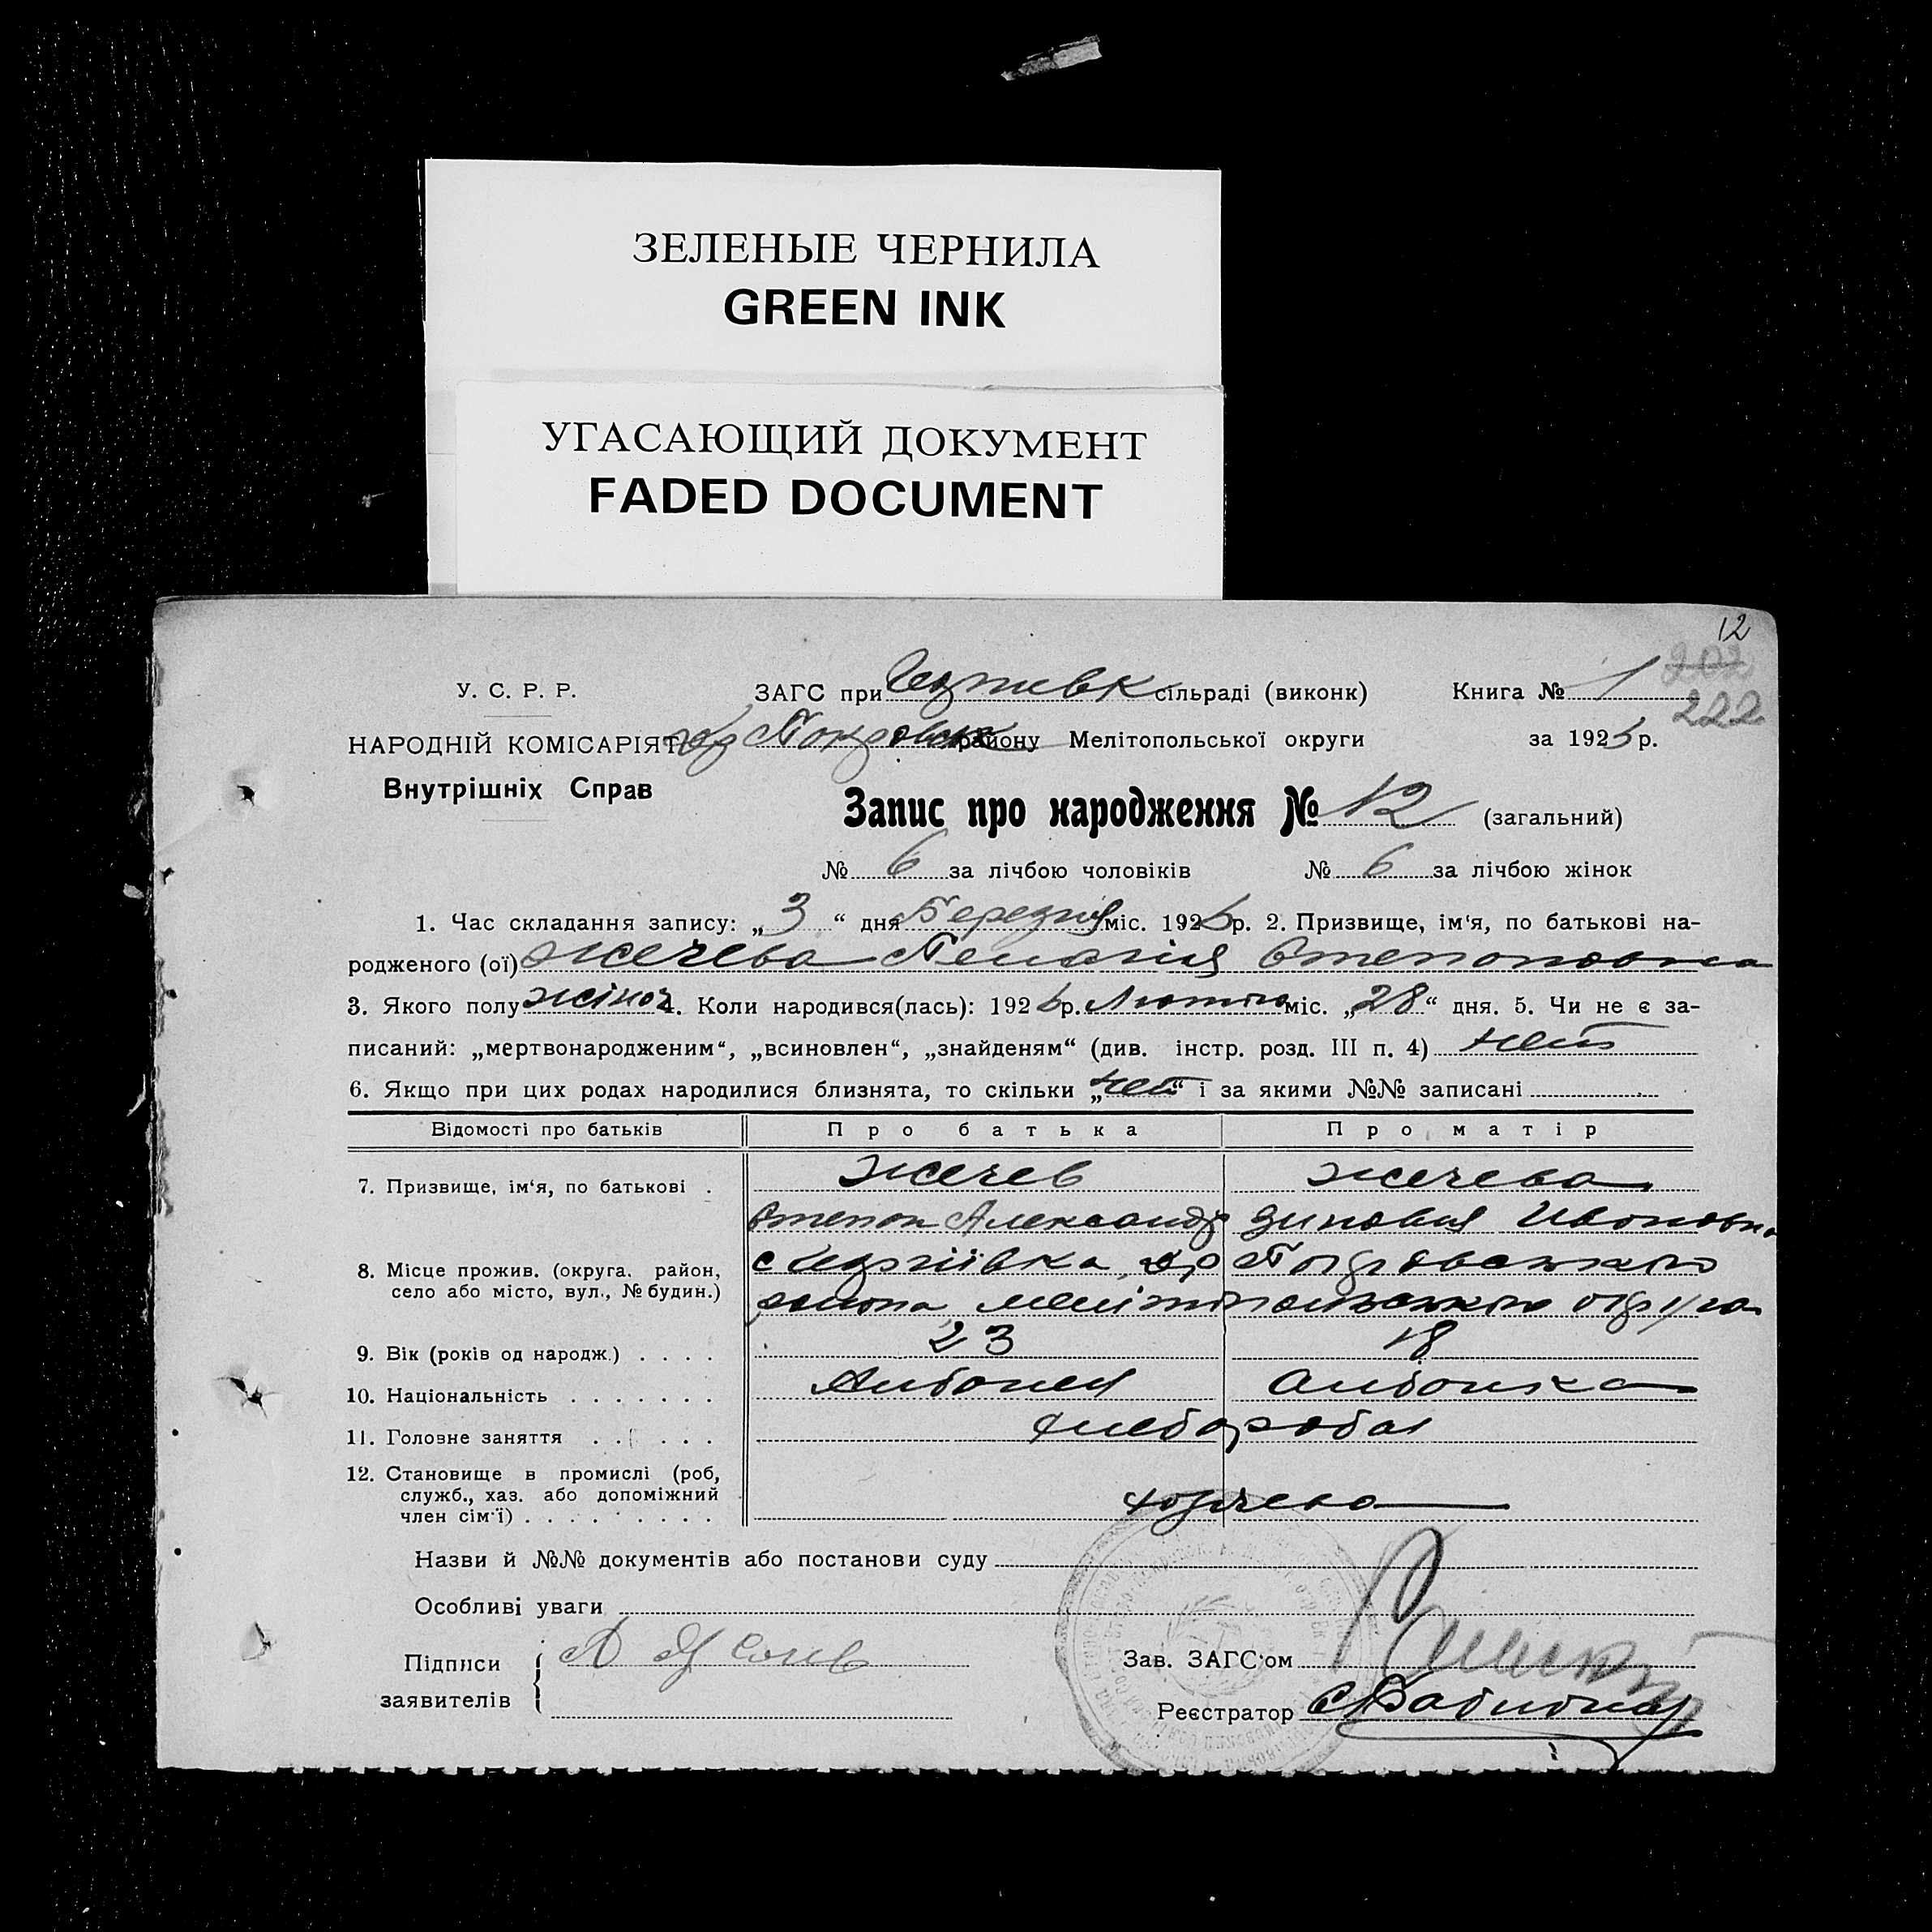 ЗЕЛЕНЫЕ ЧЕРНИЛА
GREEN INK
УГАСАЮЩИЙ ДОКУМЕНТ
FADED DOCUMENT
12
202
222
У. С. Р. Р. ЗАГС при сільраді (виконк) Книга № 1
НАРОДНІЙ КОМІСАРІЯТ Покровськ району Мелітопольської округи за 192 р.
Внутрішніх Справ
Запис про народження № 12 (загальний)
№ 6 за лічбою чоловіків № 6 за лічбою жінок
1. Час складання запису: „3“ дня Березня міс. 192 р. 2. Призвище, ім‘я, по батькові на-
родженого (ої) Жечева Пелагія Степановна
3. Якого полу жіноч 4. Коли народився(лась): 192 р. Лютого міс. „28“ дня. 5. Чи не є за-
писаний: „мертвонародженим“, „всиновлен“, „знайденям“ (див. інстр. розд. III п. 4) нет
6. Якщо при цих родах народилися близнята, то скільки „нет“ і за якими №№ записані
Відомості про батьків Про батька Про матір
7. Призвище, ім‘я, по батькові . Жечев Жечева
Степан Александр Зиновия Ивановна
8. Місце прожив. (округа, район, Покровського
село або місто, вул., № будин.) района Мелітопольського округа
9. Вік (років од народж.) . . . . 23 18
10. Національність . . . . . . . Албанец Албанка
11. Головне заняття . . . . . хлебороба
12. Становище в промислі (роб,
служб., хаз. або допоміжний
член сім‘ї) . . . . . . . . .
Назви й №№ документів або постанови суду
Особливі уваги
Підписи
заявителів
Зав. ЗАГС‘ом
Реєстратор